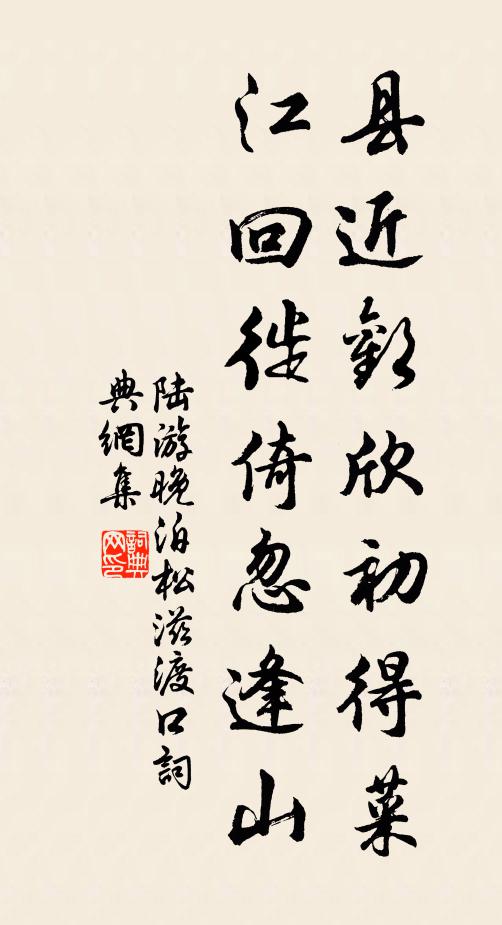 县近欢欣初得菜
江回徙倚忽逢山
陆游晚泊松滋渡口词
典網集
詞典网印